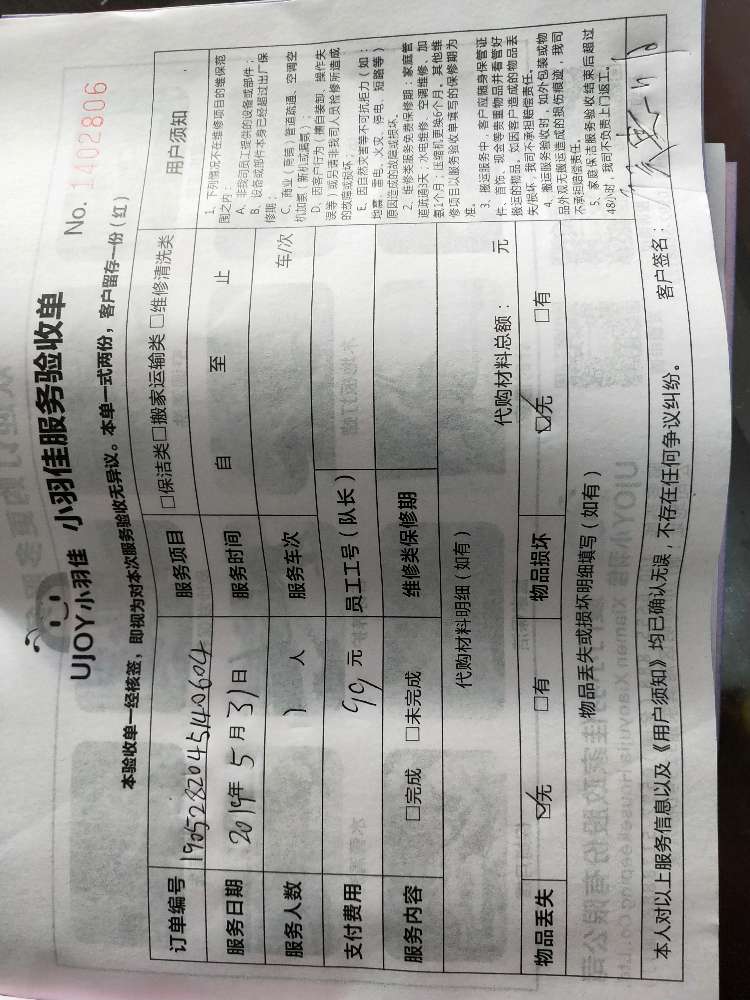 UJOY小羽佳 小羽佳服务验收单
No. 1402806
本验收单一经核签，即视为对本次服务验收无异议。本单一式两份，客户留存一份（红）
订单编号 1905282045140604 服务项目 □保洁类□搬家运输类 □维修清洗类
服务日期 2019年5月31日 服务时间 自 至 止
服务人数 1 人 服务车次 车/次
支付费用 99 元 员工工号（队长）
服务内容 □完成 □未完成 维修类保修期
代购材料明细（如有） 代购材料总额： 元
物品丢失 ☑无 □有 物品损坏 ☑无 □有
物品丢失或损坏明细填写（如有）
用户须知
1、下列情况不在维修项目的维保范
围之内：
A、非我司员工提供的设备或部件；
B、设备或部件本身已经超过出厂保
修期；
C、商业（营销）管道疏通、空调空
机加氟（新机或漏氟）；
D、因客户行为（擅自装卸、操作失
误等）或另请非我司人员检修所造成
的故障或损坏。
E、因自然灾害等不可抗拒力（如：
地震、雷电、火灾、停电、短路等）
原因造成的故障或损坏。
2、维修类服务免费保修期：家庭管
道疏通3天，水电维修、空调维修、加
氨1个月；压缩机更换6个月。其他维
修项目以服务验收单填写的保修期为
准。
3、搬运服务中，客户应随身保管证
件、首饰、现金等贵重物品并看管好
搬运的物品，如因客户造成的物品丢
失/损坏，我司不承担赔偿责任。
4、搬运服务验收时，如外包装或物
品外观无搬运造成的损伤痕迹，我司
不承担赔偿责任。
5、家庭保洁服务验收结束后超过
48小时，我司不负责上门返工。
本人对以上服务信息以及《用户须知》均已确认无误，不存在任何争议纠纷。 客户签名：